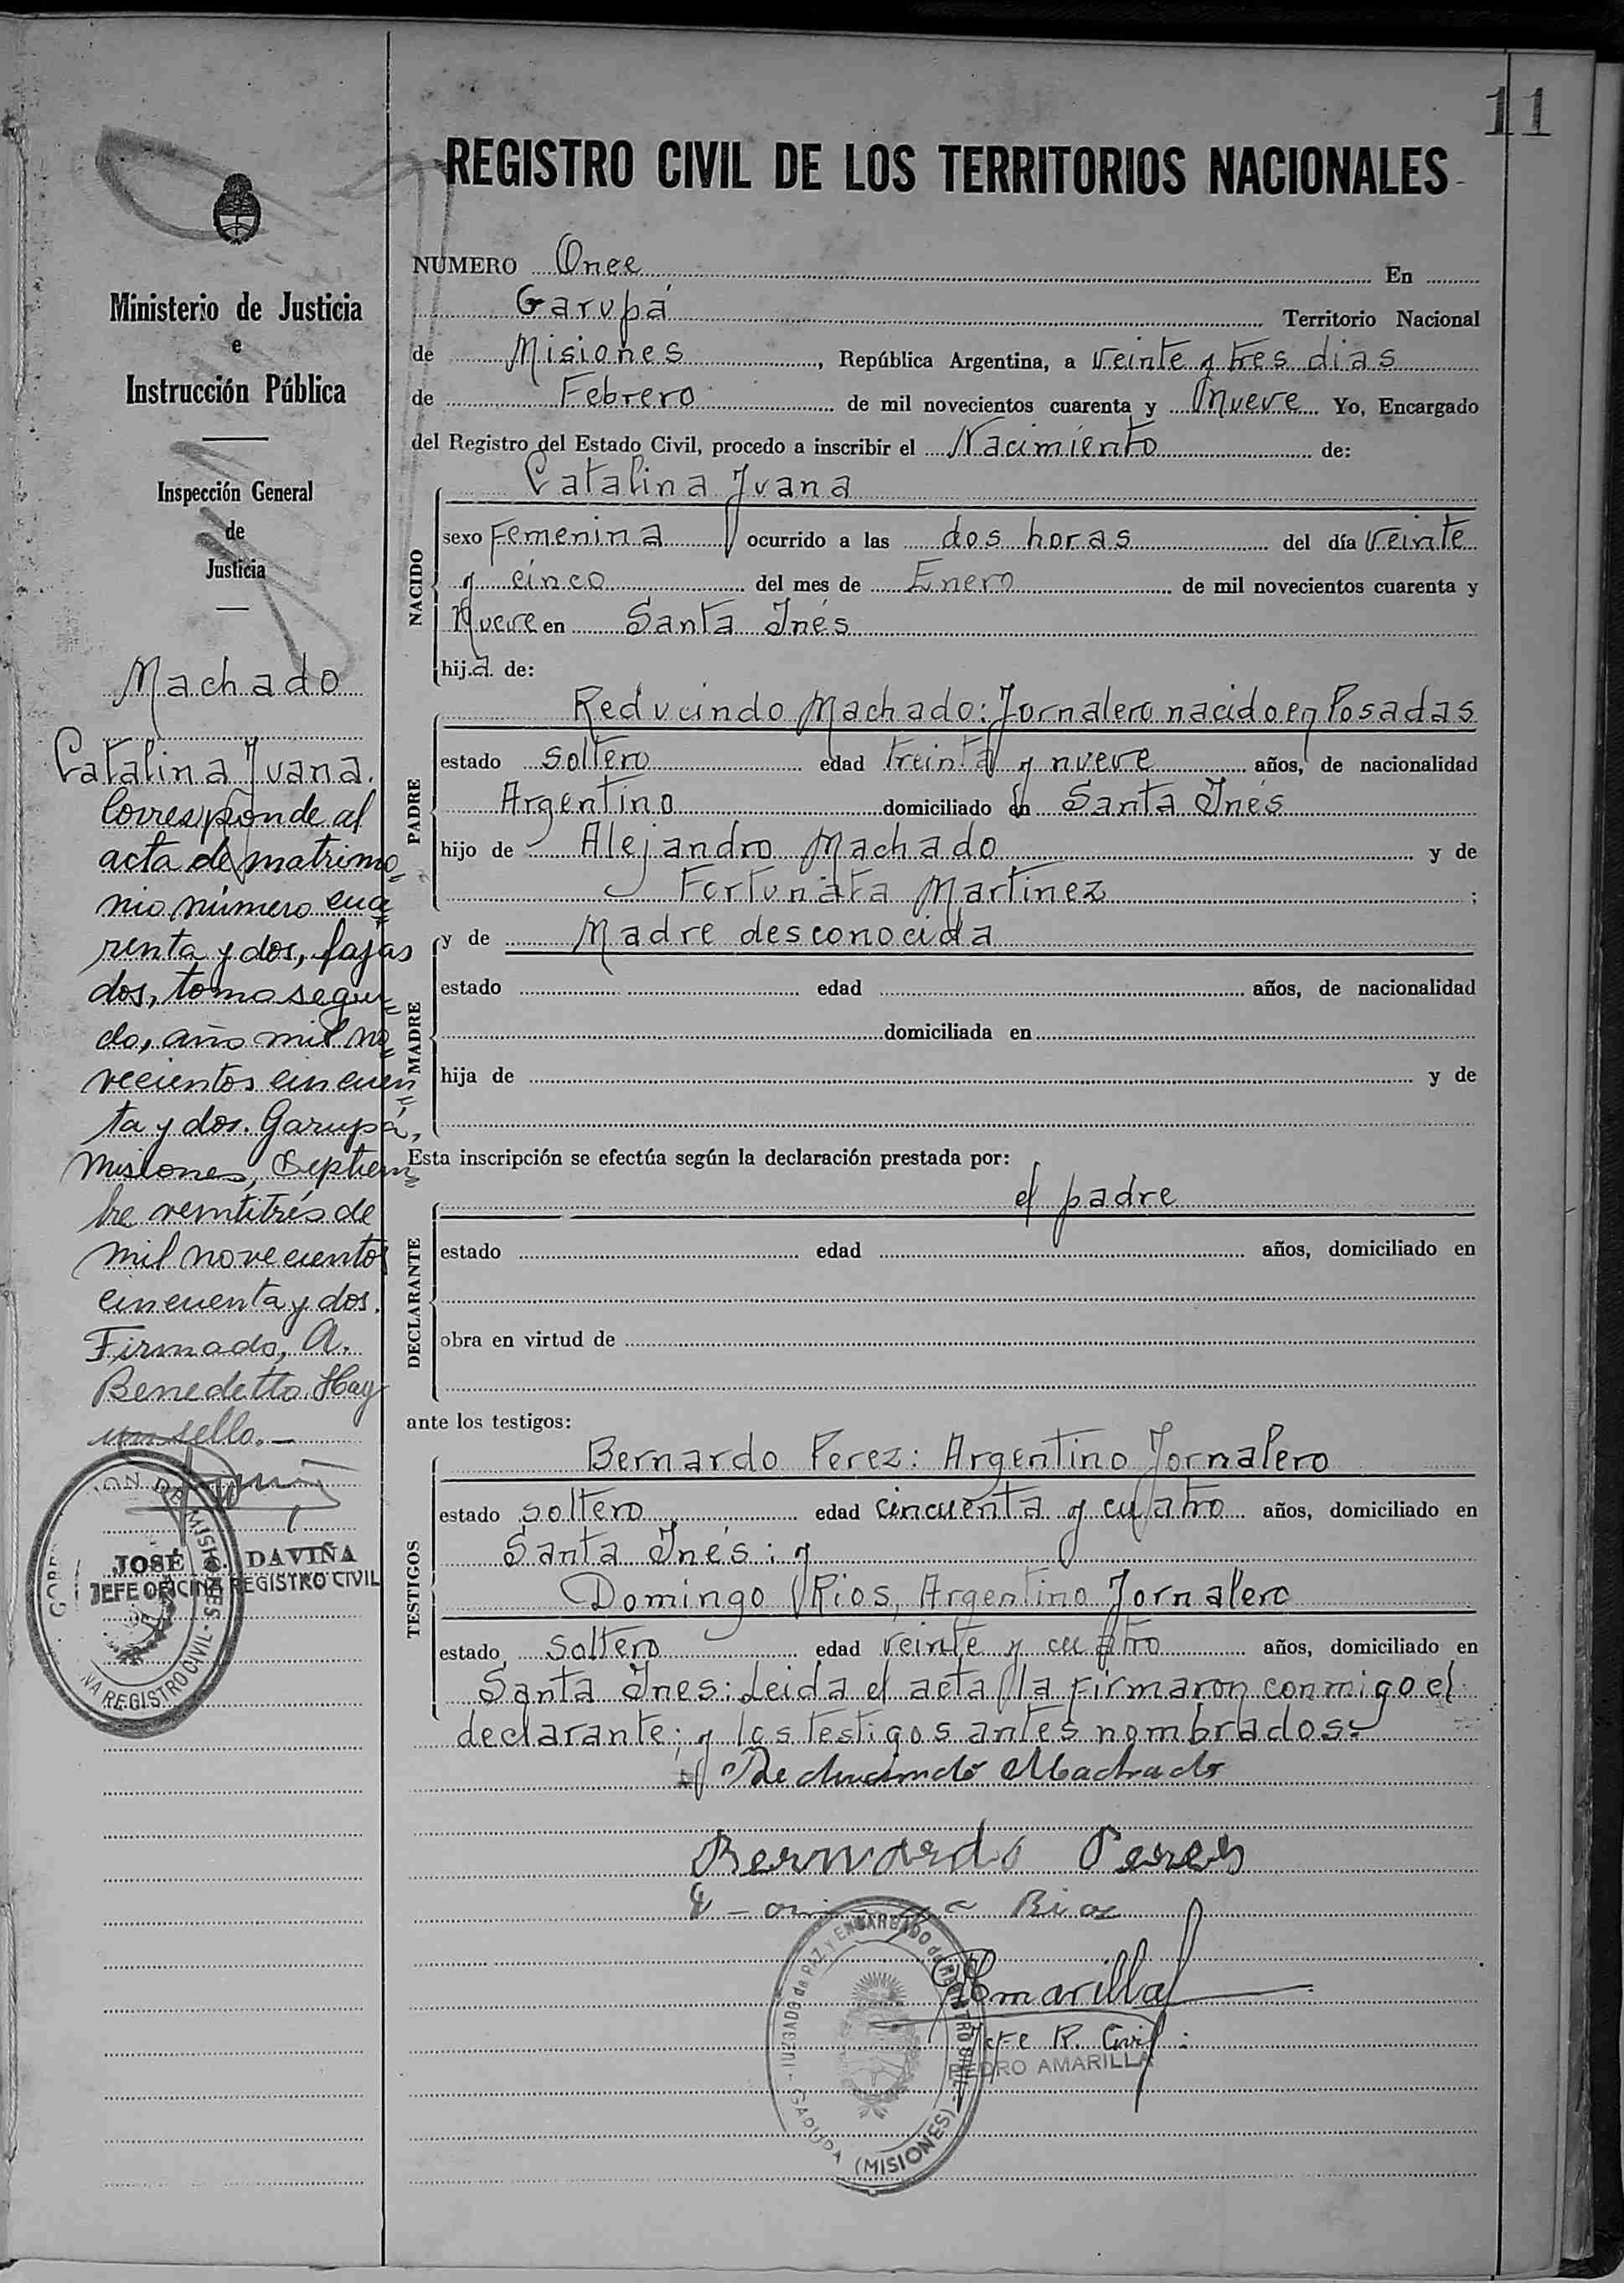 11
REGISTRO CIVIL DE LOS TERRITORIOS NACIONALES
Ministerio de Justicia
e
Instrucción Pública
Inspección General
de
Justicia
Machado
Catalina Juana.
Corresponde al
acta de matrimo
nio número cua
renta y dos, fojas
dos, tomo segun
do, año mil no
vecientos cincuen
ta y dos. Garupá,
Misiones, Septiem
bre veintitrés de
mil novecientos
cincuenta y dos.
Firmado, A.
Benedetto. Hay
un sello.—
JOSÉ DAVIÑA
JEFE OFICINA REGISTRO CIVIL
NUMERO Once En
Garupá Territorio Nacional
de Misiones, República Argentina, a veinte y tres dias
de Febrero de mil novecientos cuarenta y Nueve Yo, Encargado
del Registro del Estado Civil, procedo a inscribir el Nacimiento de:
NACIDO
Catalina Juana
sexo Femenina ocurrido a las dos horas del día veinte
y cinco del mes de Enero de mil novecientos cuarenta y
Nueve en Santa Inés
hija de:
PADRE
Reducindo Machado: Jornalero nacido en Posadas
estado soltero edad treinta y nueve años, de nacionalidad
Argentino domiciliado en Santa Inés
hijo de Alejandro Machado y de
Fortunata Martinez ;
MADRE
y de Madre desconocida
estado edad años, de nacionalidad
domiciliada en
hija de y de
Esta inscripción se efectúa según la declaración prestada por:
DECLARANTE
el padre
estado edad años, domiciliado en
obra en virtud de
ante los testigos:
TESTIGOS
Bernardo Perez: Argentino Jornalero
estado soltero edad cincuenta y cuatro años, domiciliado en
Santa Inés: y
Domingo Rios, Argentino Jornalero
estado soltero edad veinte y cuatro años, domiciliado en
Santa Ines: Leida el acta la firmaron conmigo el
declarante; y los testigos antes nombrados:
Reducindo Machado
Bernardo Peres
Rios
Amarilla
Jefe R. Civil:
PEDRO AMARILLA
JUZGADO de PAZ y ENCARGADO de REGISTRO CIVIL - GARUPA (MISIONES)